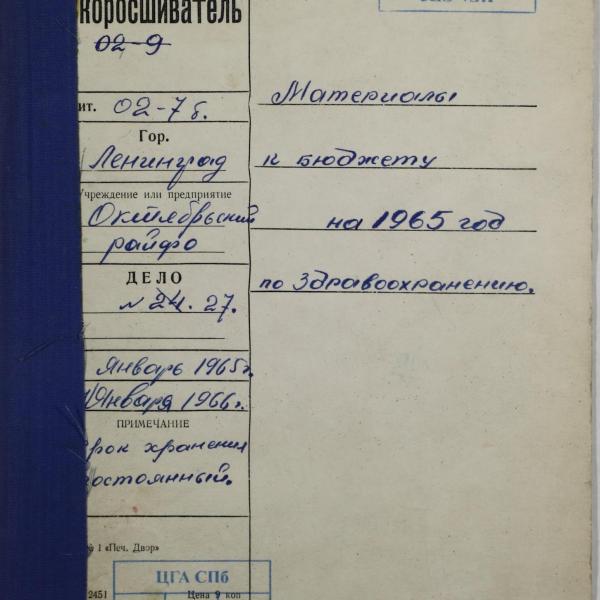 коросшиватель
02-9
ит. 02-7б.
Гор.
Ленинград
чреждение или предприятие
Октябрьский
райфо
ДЕЛО
№ 24. 27.
январь 1965г.
Января 1966г.
ПРИМЕЧАНИЕ
рок хранения
остоянный.
№ 1 «Печ. Двор»
2451 Цена 9 коп
ЦГА СПб
Материалы
к бюджету
на 1965 год
по Здравоохранению.